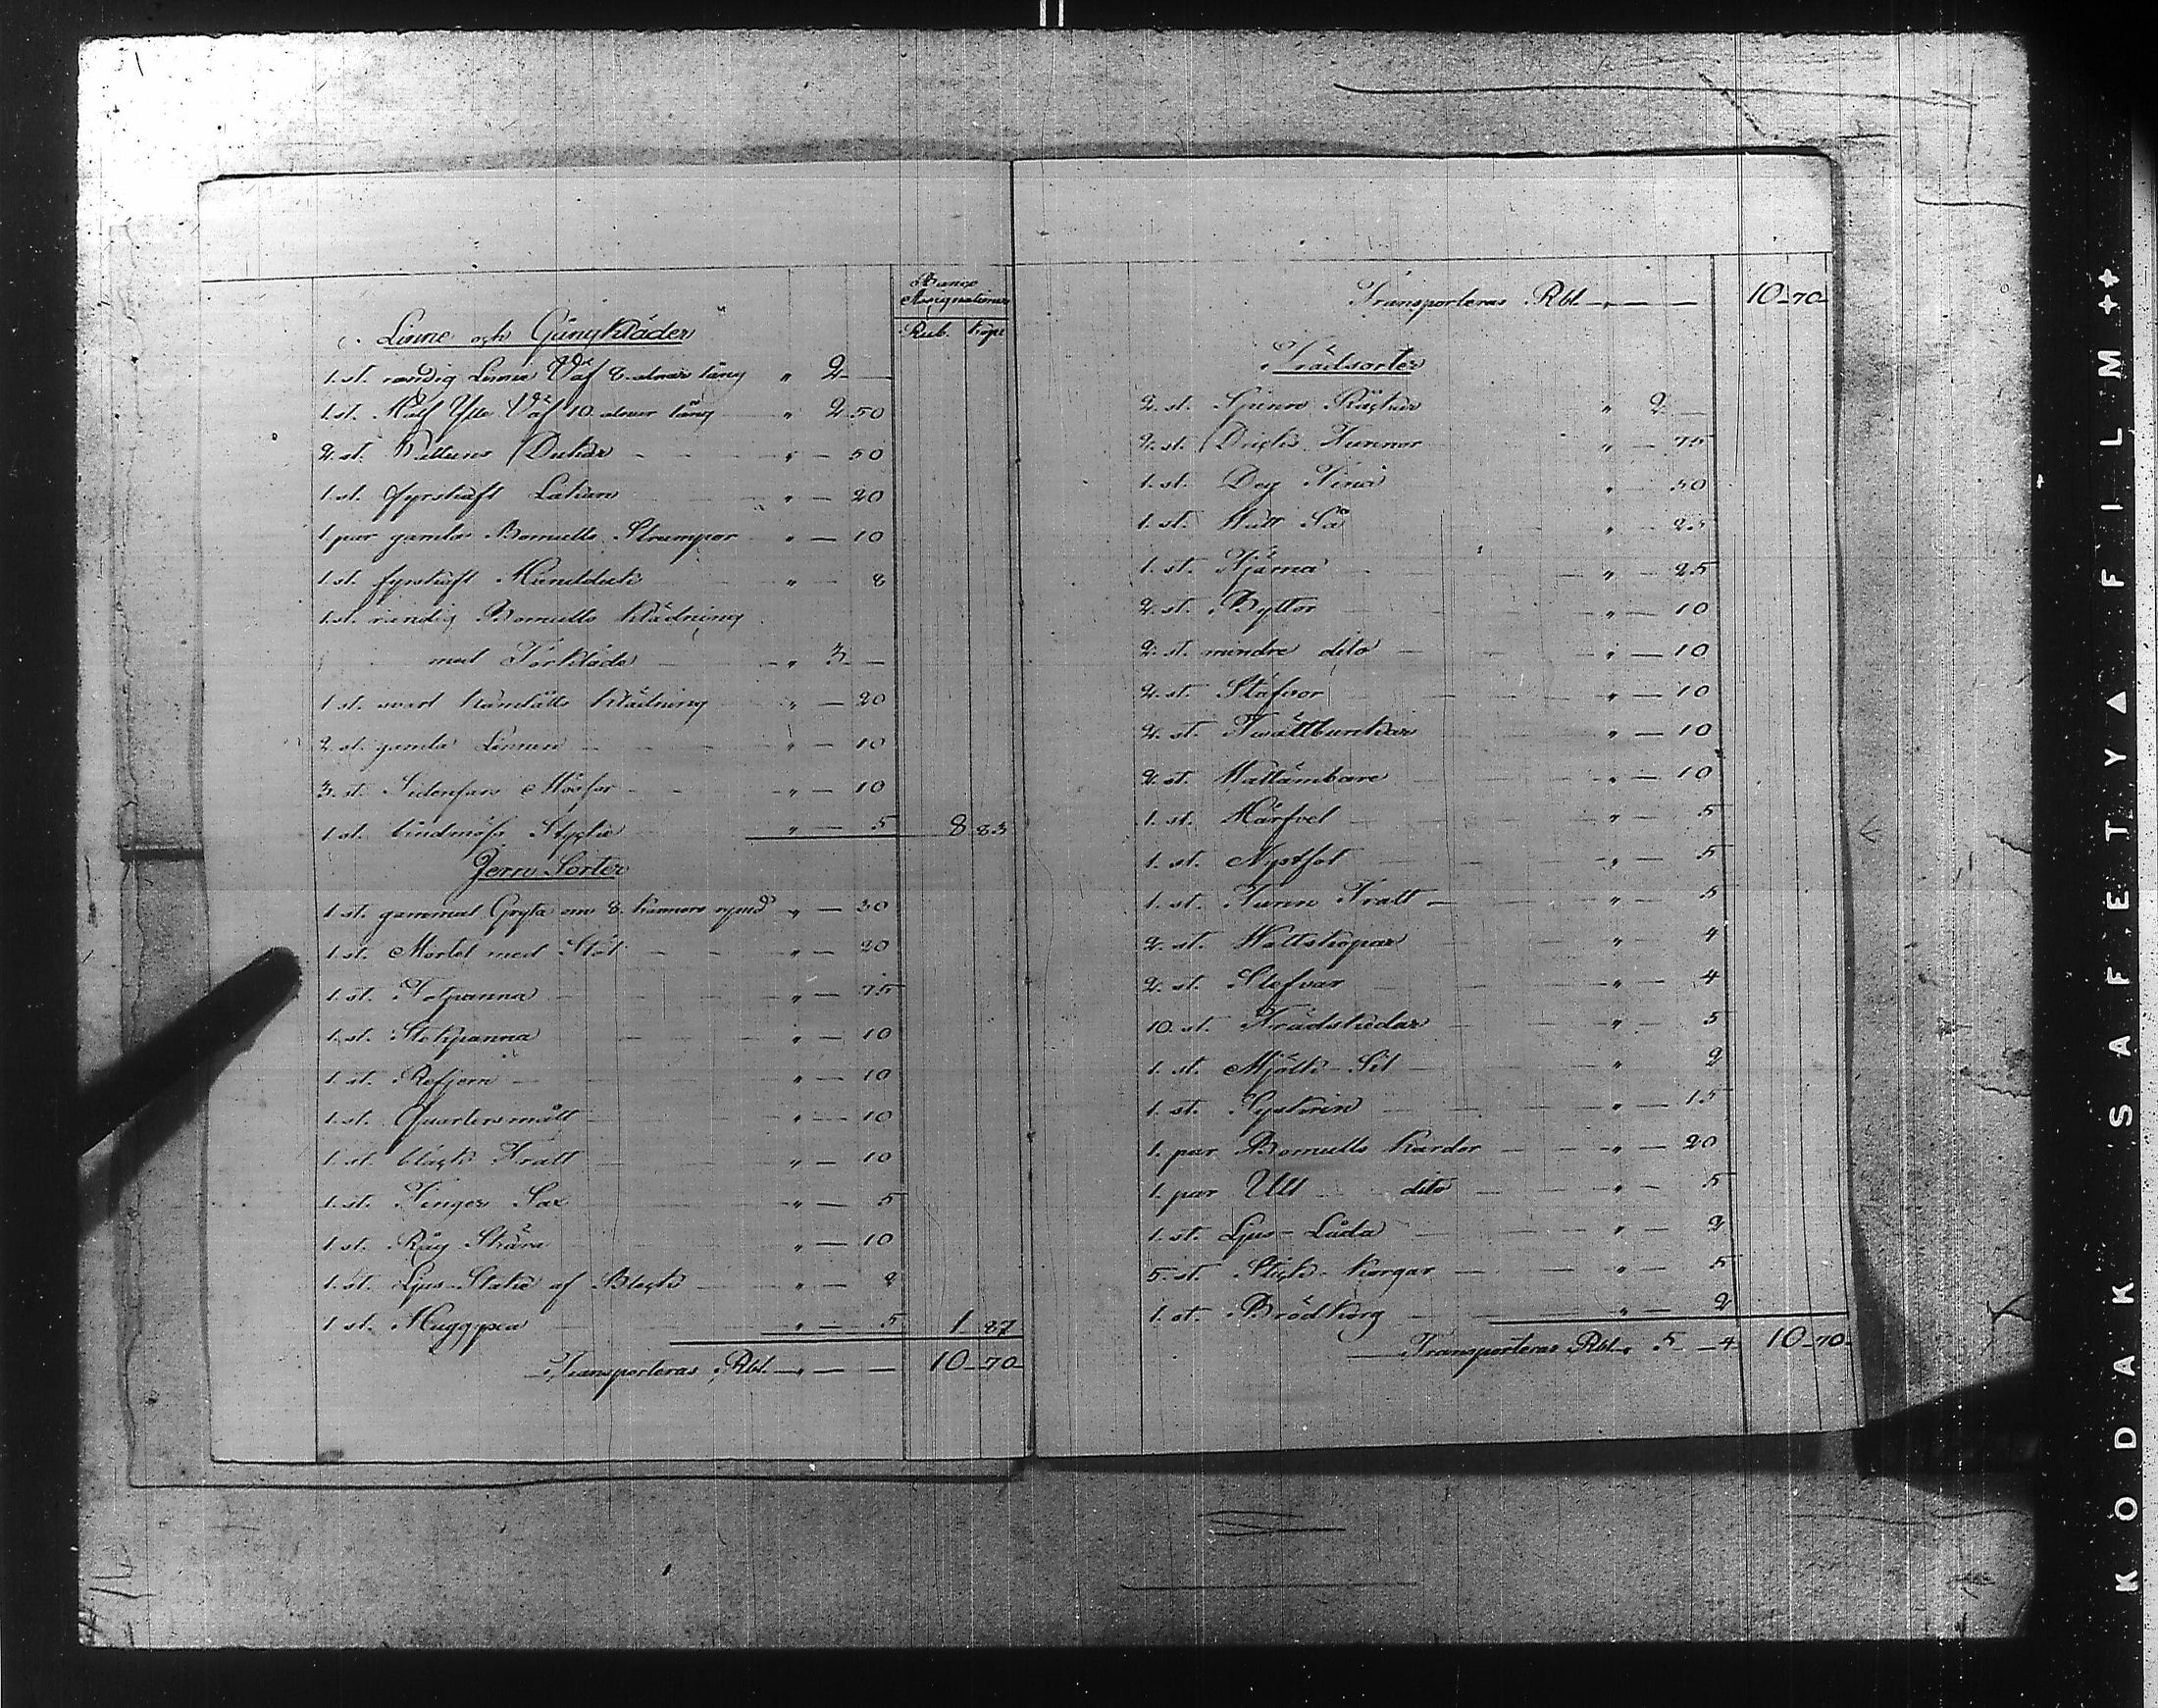 Banco
Assignationer
Rub. Kope
Linne och Gångkläder
1. st. randig Linne Väf 8. alnar lång " 2 —
1 st. Half Ylle Väf 10. alnar lång " 2 50
2. st. Dukar — " — 50
1 st. fyrskaft Lakan — " — 20
1 par gamla Bomulls Strumpor " — 10
1 st. fyrskaft Handduk — " — 8
1. st. randig Bomulls Klädning
med Förkläde — " 3 —
1 st. svart Klädning " — 20
2 st. gamla Linnen — " — 10
3. st. Mössor — " — 10
1 st. bindmöss Stycke " — 5 8 83
Jern Sorter
1 st. gammal Gryta om 8. kannors rymd " — 30
1 st. Mortel med Stöt — " — 20
1. st. Fotpanna — " — 75
1. st. Stekpanna — " — 10
1 st. Refjern — " — 10
1. st. Quartersmått — " — 10
1 st. bläck Tratt — " — 10
1. st. Finger Sax — " — 5
1 st. Råg Skära — " — 10
1. st. Ljus-Stake af Bleck — " — 2
1 st. Huggyxa — " — 5 1 87
Transporteras Rbl. — " — — 10 70
Transporteras Rbl — " — — 10 70
Trädsorter
2. st. Spinn Råckar " 2 —
2. st. Dricks Kannor " — 75
1. st. Deg Tina " — 50
1. st. Så " — 25
1. st. Kjärna — " — 25
2. st. Byttor — " — 10
2. st. mindre dito — " — 10
2. st. Stäfvor — " — 10
2. st. Tvättbunkar — " — 10
2. st. Wattämbare — " — 10
1. st. Härfvel — " — 5
1. st. Nystfot — " — 5
1. st. Tunn Tratt — " — 5
2. st. Wattskopar — " — 4
2. st. Slefvar — " — 4
10. st. Trädskedar — " — 5
1. st. Mjölk-Sil — " 2
1. st. — " — 15
1. par Bomulls Kardor — " — 20
1. par Ull dito — " — 5
1. st. Ljus-Låda — " — 2
5. st. Korgar — " — 5
1. st. Brödkorg — " — 2
Transporteras Rbl. 5 — 4 10 70